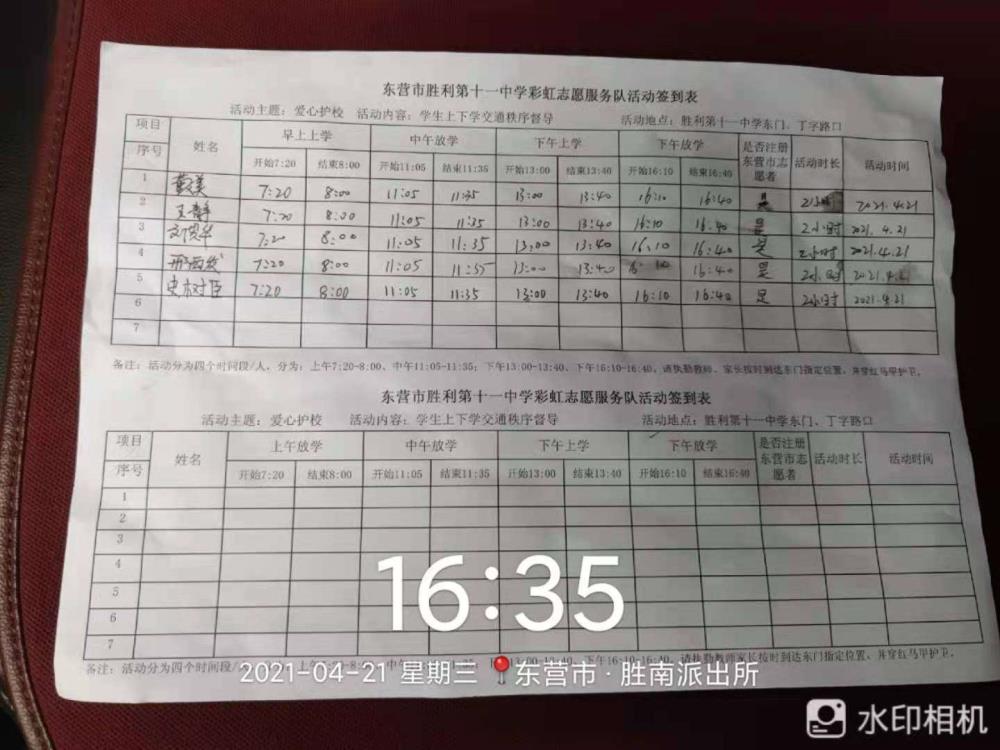 东营市胜利第十一中学彩虹志愿服务队活动签到表
活动主题：爱心护校 活动内容：学生上下学交通秩序督导 活动地点：胜利第十一中学东门、丁字路口
项目 序号 姓名 早上上学 中午放学 下午上学 下午放学 是否注册东营市志愿者 活动时长 活动时间
开始7:20 结束8:00 开始11:05 结束11:35 开始13:00 结束13:40 开始16:10 结束16:40
1 7:20 8:00 11:05 11:35 13:00 13:40 16:10 16:40 是 2小时 2021.4.21
2 王静 7:20 8:00 11:05 11:35 13:00 13:40 16:10 16:40 是 2小时 2021.4.21
3 7:20 8:00 11:05 11:35 13:00 13:40 16:10 16:40 是 2小时 2021.4.21
4 7:20 8:00 11:05 11:35 13:00 13:40 16:10 16:40 是 2小时 2021.4.21
5 史树臣 7:20 8:00 11:05 11:35 13:00 13:40 16:10 16:40 是 2小时 2021.4.21
6
7
备注：活动分为四个时间段/人，分为：上午7:20-8:00、中午11:05-11:35；下午13:00-13:40、下午16:10-16:40，请执勤教师、家长按时到达东门指定位置，并穿红马甲护卫。
东营市胜利第十一中学彩虹志愿服务队活动签到表
活动主题：爱心护校 活动内容：学生上下学交通秩序督导 活动地点：胜利第十一中学东门、丁字路口
项目 序号 姓名 上午放学 中午放学 下午上学 下午放学 是否注册东营市志愿者 活动时长 活动时间
开始7:20 结束8:00 开始11:05 结束11:35 开始13:00 结束13:40 开始16:10 结束16:40
1
2
3
4
5
6
7
16:35
备注：活动分为四个时间段/ 13:00-13:40、下午16:10-16:40，请执勤教师家长按时到达东门指定位置，并穿红马甲护卫。
2021-04-21 星期三 东营市·胜南派出所
水印相机